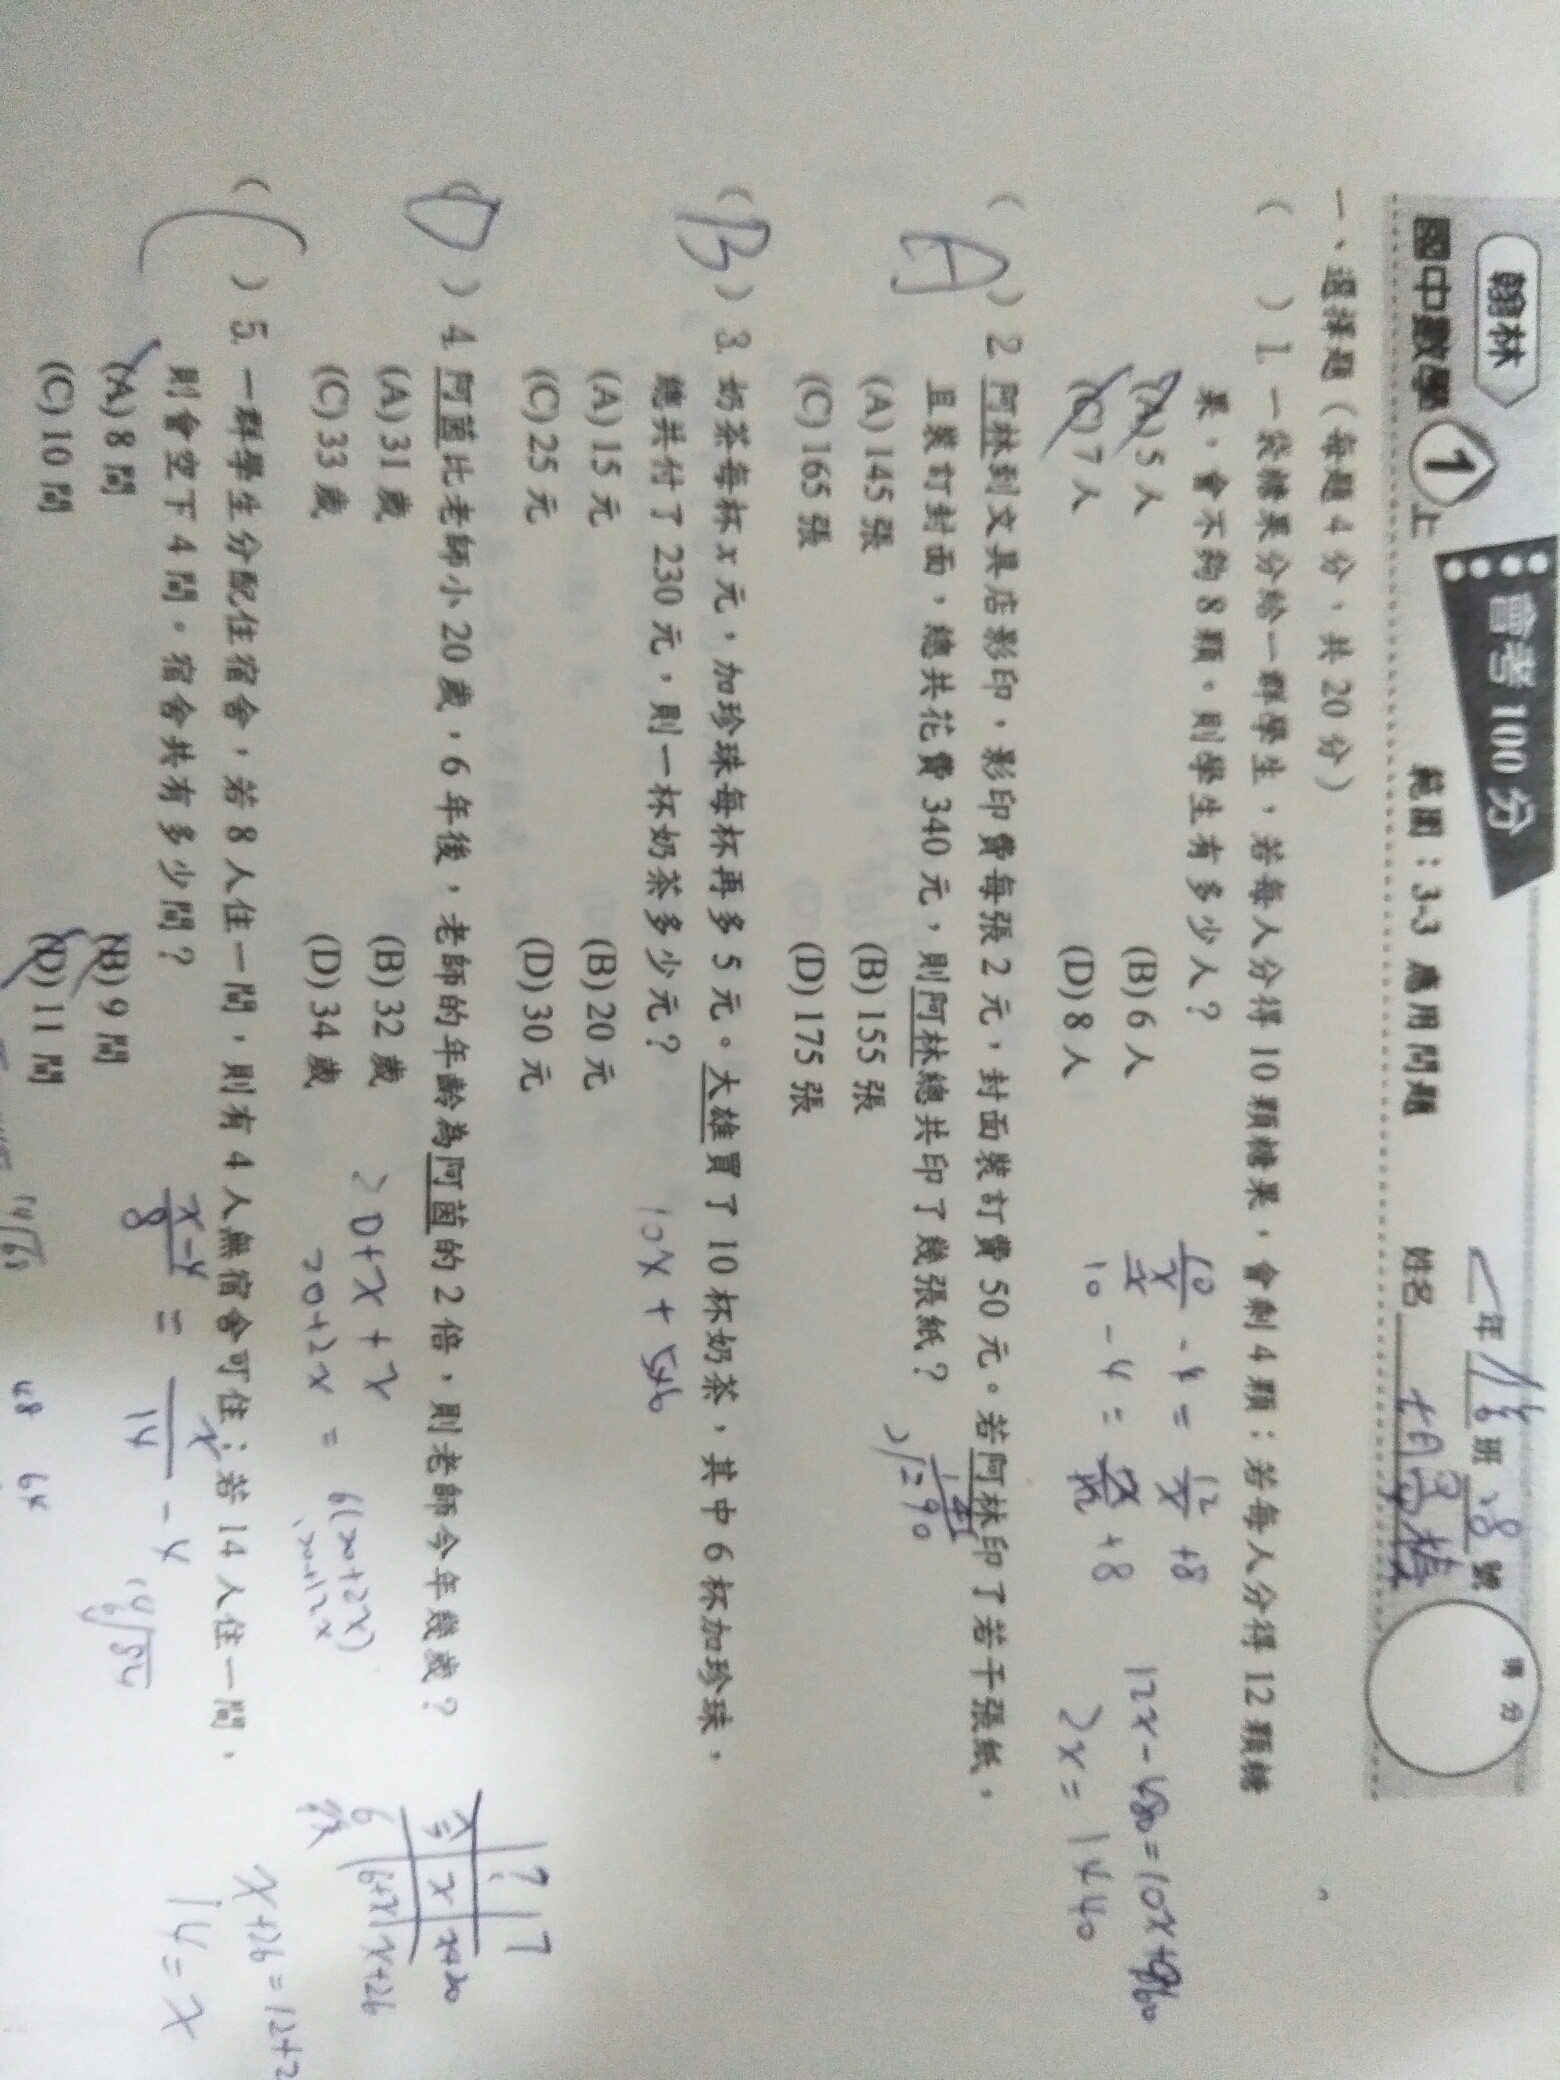 翰林
國中數學 1 上
會考100分
範圍：3-3 應用問題
年 班 號
姓名
得分
一、選擇題（每題4分，共20分）
( ) 1. 一袋糖果分給一群學生，若每人分得10顆糖果，會剩4顆；若每人分得12顆糖
果，會不夠8顆。則學生有多少人？
(A) 5人 (B) 6人
(C) 7人 (D) 8人
10/x - 4 = 12/x + 8
12x - 480 = 10x + 960
2x = 1440
(A) 2. 阿林到文具店影印，影印費每張2元，封面裝訂費50元。若阿林印了若干張紙，
且裝訂封面，總共花費340元，則阿林總共印了幾張紙？
(A) 145張 (B) 155張
(C) 165張 (D) 175張
(B) 3. 奶茶每杯x元，加珍珠每杯再多5元。大雄買了10杯奶茶，其中6杯加珍珠，
總共付了230元，則一杯奶茶多少元？
10x + 5×6
(A) 15元 (B) 20元
(C) 25元 (D) 30元
(D) 4. 阿茵比老師小20歲，6年後，老師的年齡為阿茵的2倍，則老師今年幾歲？
(A) 31歲 (B) 32歲
(C) 33歲 (D) 34歲
20+x+x
20+2x = 6(20+2x)
x x+20
6+x x+26
x+26=12+2
14=x
( ) 5. 一群學生分配住宿舍，若8人住一間，則有4人無宿舍可住；若14人住一間，
則會空下4間。宿舍共有多少間？
(A) 8間 (B) 9間
(C) 10間 (D) 11間
x-4/8 = x/14 - 4
48